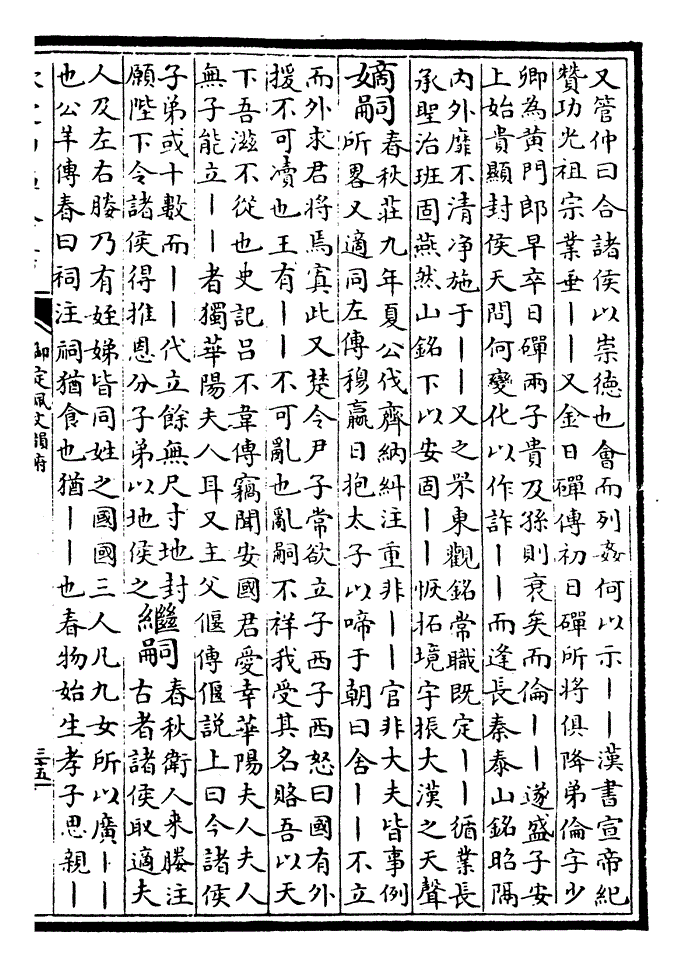 又管仲曰合諸侯以崇德也會而列姦何以示｜｜漢書宣帝紀
贊功光祖宗業垂｜｜又金日磾傳初日磾所將俱降弟倫字少
卿為黃門郎早卒日磾兩子貴及孫則衰矣而倫｜｜遂盛子安
上始貴顯封侯天問何變化以作詐｜｜而逢長秦泰山銘昭隔
內外靡不清净施于｜｜又之罘東觀銘常職既定｜｜循業長
承聖治班固燕然山銘下以安固｜｜恢拓境宇振大漢之天聲
嫡嗣
春秋莊九年夏公伐齊納糾注重非｜｜官非大夫皆事例
所畧又適同左傳穆嬴日抱太子以啼于朝曰舍｜｜不立
而外求君將焉寘此又楚令尹子常欲立子西子西怒曰國有外
援不可瀆也王有｜｜不可亂也亂嗣不祥我受其名賂吾以天
下吾滋不從也史記呂不韋傳竊聞安國君愛幸華陽夫人夫人
無子能立｜｜者獨華陽夫人耳又主父偃傳偃説上曰今諸侯
子弟或十數而｜｜代立餘無尺寸地封
願陛下令諸侯得推恩分子弟以地侯之
繼嗣
春秋衛人来媵注
古者諸侯取適夫
人及左右媵乃有姪娣皆同姓之國國三人凡九女所以廣｜｜
也公羊傳春曰祠注祠猶食也猶｜｜也春物始生孝子思親｜
御定佩文韻府
三五